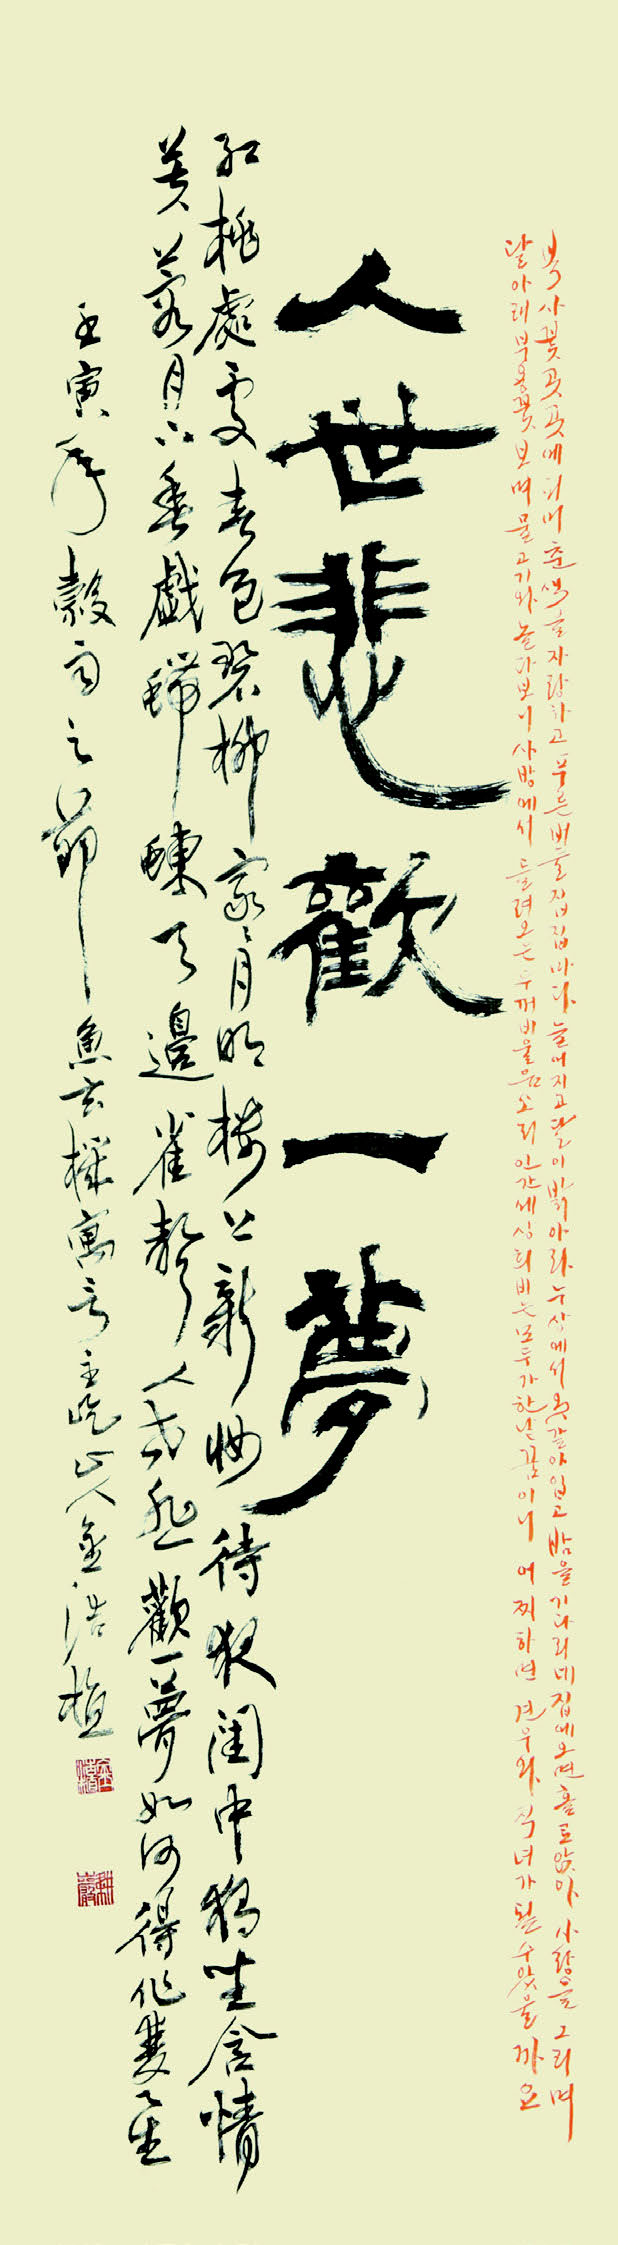 복사꽃 곳곳에 피며 춘색을 자랑하고 푸른버들 집집마다 늘어지고 달이 밝아라 누상에서 옷갈아입고 밤을 기다리네 집에오면 홀로앉아 사랑을 그리며
달아래 부용꽃 보며 물고기와 놀다보니 사방에서 들려오는 두꺼비울음소리 인간세상 희비는 모두가 한낱 꿈이니 어찌하면 견우와 직녀가 될수있을까요
人世悲歡一夢
紅桃處處春色碧柳家家月明樓上新妝待夜閨中獨坐含情
芙蓉月下魚戲螮蝀天邊雀聲人世悲歡一夢如何得作雙星
壬寅年穀雨之節魚玄機寓言主屹山人金浩植